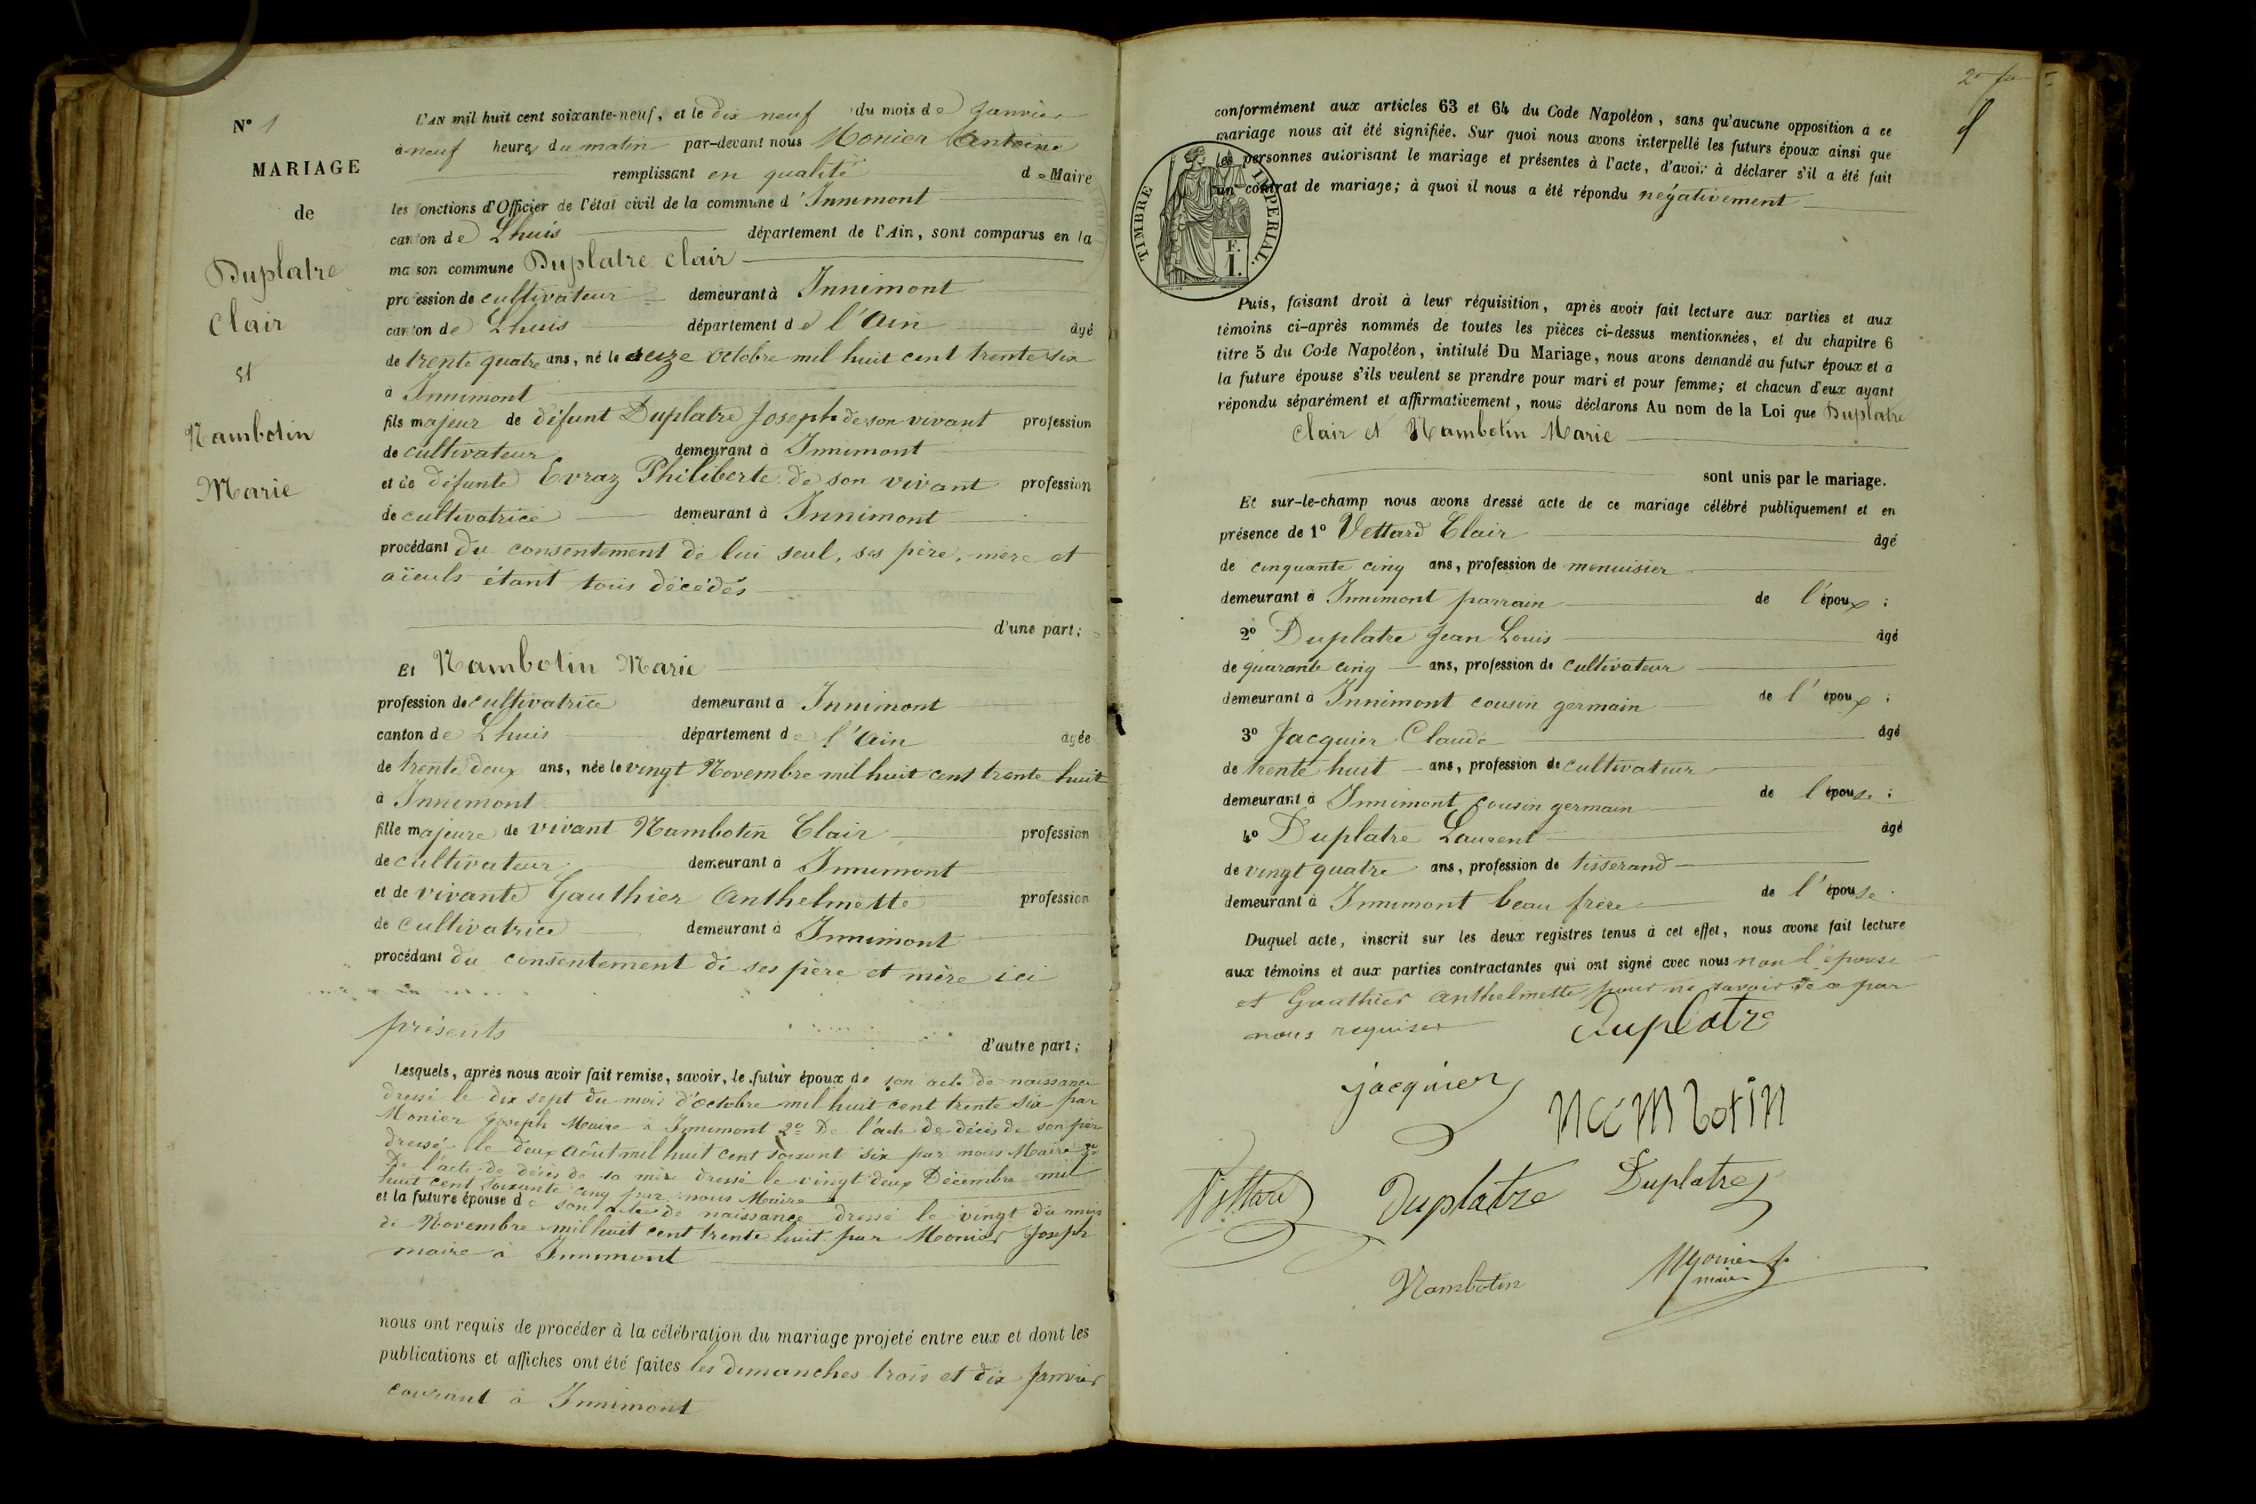 N° 1
MARIAGE
de
Duplatre
Clair
et
Nambotin
Marie
L'AN mil huit cent soixante-neuf, et le dix neuf du mois de Janvier
à neuf heures du matin par-devant nous Monier Antoine
remplissant en qualité de Maire
les fonctions d'Officier de l'état civil de la commune d'Innimont
canton de Lhuis département de l'Ain, sont comparus en la
maison commune Duplatre Clair
profession de cultivateur demeurant à Innimont
canton de Lhuis département de l'Ain âgé
de trente quatre ans, né le seize Octobre mil huit cent trente six
à Innimont
fils majeur de défunt Duplatre Joseph de son vivant profession
de cultivateur demeurant à Innimont
et de défunte Evraz Philiberte de son vivant profession
de cultivatrice demeurant à Innimont
procédant du consentement de lui seul, ses père, mère et
aïeuls étant tous décédés
d'une part;
Et Nambotin Marie
profession de cultivatrice demeurant à Innimont
canton de Lhuis département de l'Ain âgée
de trente deux ans, née le vingt Novembre mil huit cent trente huit
à Innimont
fille majeure de vivant Nambotin Clair profession
de cultivateur demeurant à Innimont
et de vivante Gauthier Anthelmette profession
de cultivatrice demeurant à Innimont
procédant du consentement de ses père et mère ici
présents
d'autre part;
Lesquels, après nous avoir fait remise, savoir, le futur époux de son acte de naissance
dressé le dix sept du mois d'Octobre mil huit cent trente six par
Monier Joseph Maire à Innimont 2° De l'acte de décès de son père
dressé le deux Août mil huit cent soixante six par nous Maire 3°
De l'acte de décès de sa mère dressé le vingt deux Décembre mil
huit cent soixante cinq par nous Maire
et la future épouse de son acte de naissance dressé le vingt du mois
de Novembre mil huit cent trente huit par Monier Joseph
maire à Innimont
nous ont requis de procéder à la célébration du mariage projeté entre eux et dont les
publications et affiches ont été faites les dimanches trois et dix Janvier
courant à Innimont
conformément aux articles 63 et 64 du Code Napoléon, sans qu'aucune opposition à ce
mariage nous ait été signifiée. Sur quoi nous avons interpellé les futurs époux ainsi que
les personnes autorisant le mariage et présentes à l'acte, d'avoir à déclarer s'il a été fait
un contrat de mariage; à quoi il nous a été répondu négativement
TIMBRE IMPERIAL.
F.
I.
Puis, faisant droit à leur réquisition, après avoir fait lecture aux parties et aux
témoins ci-après nommés de toutes les pièces ci-dessus mentionnées, et du chapitre 6
titre 5 du Code Napoléon, intitulé Du Mariage, nous avons demandé au futur époux et à
la future épouse s'ils veulent se prendre pour mari et pour femme; et chacun d'eux ayant
répondu séparément et affirmativement, nous déclarons Au nom de la Loi que Duplatre
Clair et Nambotin Marie
sont unis par le mariage.
Et sur-le-champ nous avons dressé acte de ce mariage célébré publiquement et en
présence de 1° Vettard Clair âgé
de cinquante cinq ans, profession de menuisier
demeurant à Innimont parrain de l'époux;
2° Duplatre Jean Louis âgé
de quarante cinq ans, profession de cultivateur
demeurant à Innimont cousin germain de l'époux;
3° Jacquier Claude âgé
de trente huit ans, profession de cultivateur
demeurant à Innimont cousin germain de l'épouse;
4° Duplatre Laurent âgé
de vingt quatre ans, profession de tisserand
demeurant à Innimont beau frère de l'épouse.
Duquel acte, inscrit sur les deux registres tenus à cet effet, nous avons fait lecture
aux témoins et aux parties contractantes qui ont signé avec nous non l'épouse
et Gauthier Anthelmette pour ne savoir de ce par
nous requises
Duplatre
Jacquier
Nambotin
Vettard
Duplatre
Duplatre
Nambotin
Monier
maire